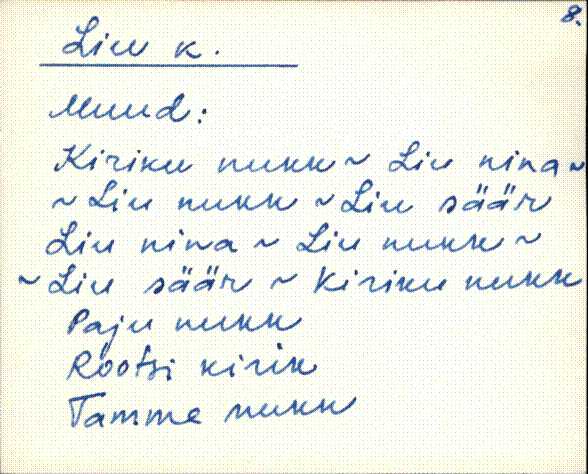 8.
Liu k.
Muud:
Kiriku nukk ~ Liu nina ~
~ Liu nukk ~ Liu säär
Liu nina ~ Liu nukk ~
~ Liu säär ~ Kiriku nukk
Paju nukk
Rootsi kirik
Tamme nukk